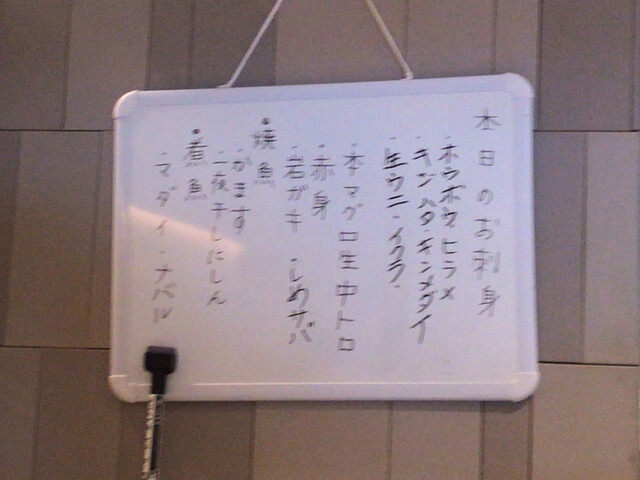 本日のお刺身
・ホウボウ、ヒラメ
・キジハタ・キンメダイ
・生ウニ・イクラ・
・本マグロ生中トロ
・赤身
・岩ガキ ・しめサバ
・焼魚
・かます
・一夜干しにしん
・煮魚
・マダイ・ナバル